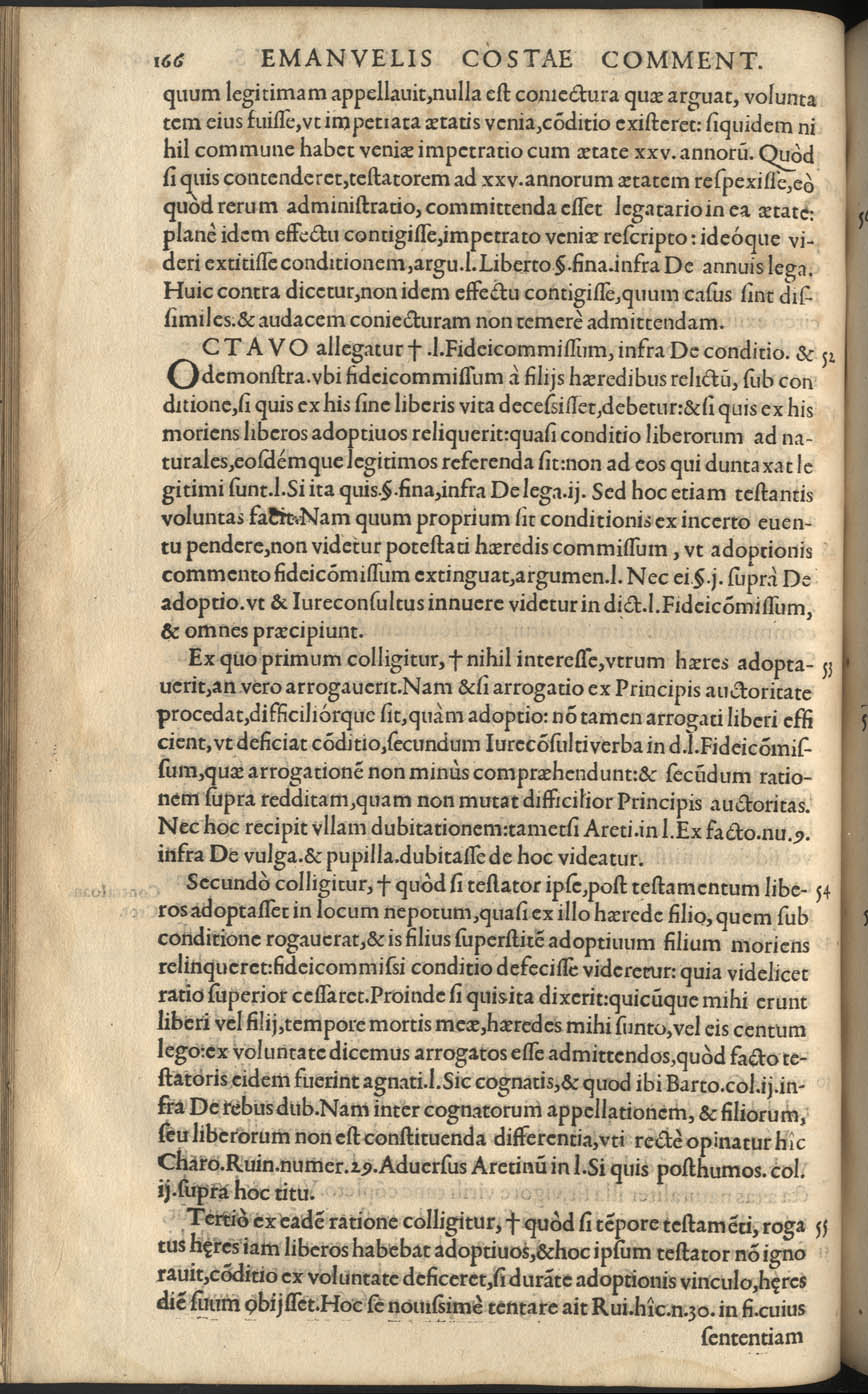 166 EMANVELIS COSTAE COMMENT.
quum legitimam appellauit,nulla eſt coniectura quæ arguat, volunta
tem eius fuiſſe,vt impetrata ætatis venia,cõditio exiſteret: ſiquidem ni
hil commune habet veniæ impetratio cum ætate xxv. annorũ. Quòd
ſi quis contenderet,teſtatorem ad xxv.annorum ætatem reſpexiſſe,eò
quòd rerum adminiſtratio, committenda eſſet legatario in ea ætate:
planè idem effectu contigiſſe,impetrato veniæ reſcripto: ideóque vi-
deri extitiſſe conditionem,argu.l.Liberto §.fina.infra De annuis lega.
Huic contra dicetur,non idem effectu contigiſſe,quum caſus ſint diſ-
ſimiles.& audacem coniecturam non temerè admittendam.
OCTAVO allegatur † .l.Fideicommiſſum, infra De conditio. & 52
demonſtra.vbi fideicommiſſum à filijs hæredibus relictũ, ſub con
ditione,ſi quis ex his ſine liberis vita deceſsiſſet,debetur:&ſi quis ex his
moriens liberos adoptiuos reliquerit:quaſi conditio liberorum ad na-
turales,eoſdémque legitimos referenda ſit:non ad eos qui duntaxat le
gitimi ſunt.l.Si ita quis.§.fina,infra De lega.ij. Sed hoc etiam teſtantis
voluntas facit.Nam quum proprium ſit conditionis ex incerto euen-
tu pendere,non videtur poteſtati hæredis commiſſum , vt adoptionis
commento fideicõmiſſum extinguat,argumen.l. Nec ei §.j. ſuprà De
adoptio.vt & Iureconſultus innuere videtur in dict.l.Fideicõmiſſum,
& omnes præcipiunt.
Ex quo primum colligitur, † nihil intereſſe,vtrum hæres adopta- 53
uerit,an vero arrogauerit.Nam &ſi arrogatio ex Principis auctoritate
procedat,difficiliórque ſit,quàm adoptio: nõ tamen arrogati liberi effi
cient,vt deficiat cõditio,ſecundum Iurecõſulti verba in d.l.Fideicõmiſ-
ſum,quæ arrogationẽ non minùs compræhendunt:& ſecũdum ratio-
nem ſupra redditam,quam non mutat difficilior Principis auctoritas.
Nec hoc recipit vllam dubitationem:tametſi Areti.in l.Ex facto.nu.9.
infra De vulga.& pupilla.dubitaſſe de hoc videatur.
Secundò colligitur, † quòd ſi teſtator ipſe,poſt teſtamentum libe- 54
ros adoptaſſet in locum nepotum,quaſi ex illo hærede filio, quem ſub
conditione rogauerat,& is filius ſuperſtitẽ adoptiuum filium moriens
relinqueret:fideicommiſsi conditio defeciſſe videretur: quia videlicet
ratio ſuperior ceſſaret.Proinde ſi quis ita dixerit:quicũque mihi erunt
liberi vel filij,tempore mortis meæ,hæredes mihi ſunto,vel eis centum
lego:ex voluntate dicemus arrogatos eſſe admittendos,quòd facto te-
ſtatoris eidem fuerint agnati.l.Sic cognatis,& quod ibi Barto.col.ij.in-
fra De rebus dub.Nam inter cognatorum appellationem, & filiorum,
ſeu liberorum non eſt conſtituenda differentia,vti rectè opinatur hîc
Charo.Ruin.numer.29.Aduerſus Aretinũ in l.Si quis poſthumos. col.
ij.ſupra hoc titu.
Tertiò ex eadẽ ratione colligitur, † quòd ſi tẽpore teſtamẽti, roga 55
tus hęres iam liberos habebat adoptiuos,&hoc ipſum teſtator nõ igno
rauit,cõditio ex voluntate deficeret,ſi durãte adoptionis vinculo,hęres
diẽ ſuum obijſſet.Hoc ſe nouiſsimè tentare ait Rui.hîc.n.30. in fi.cuius
ſententiam